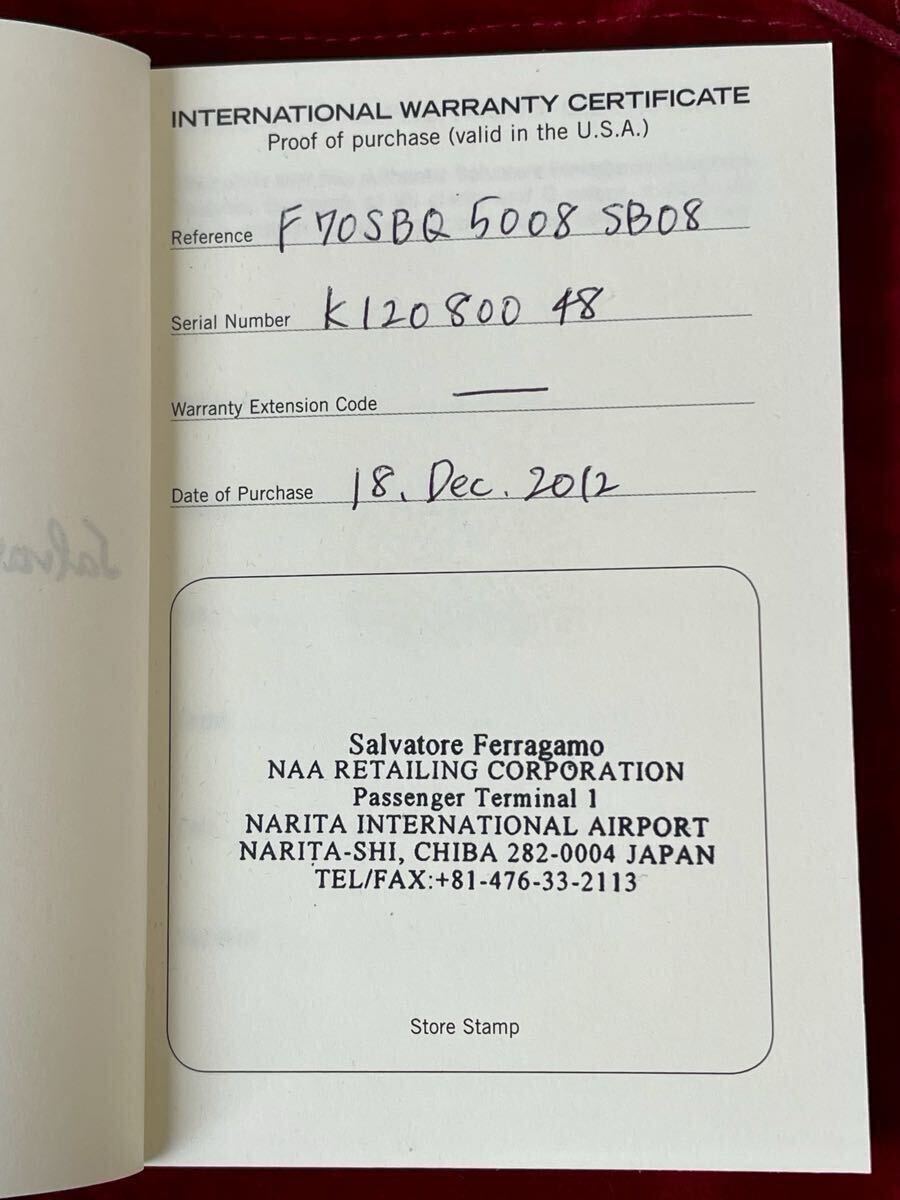 INTERNATIONAL WARRANTY CERTIFICATE
Proof of purchase (valid in the U.S.A.)
Reference F70SBQ 5008 SB08
Serial Number K120800 48
Warranty Extension Code —
Date of Purchase 18. Dec. 2012
Salvatore Ferragamo
NAA RETAILING CORPORATION
Passenger Terminal 1
NARITA INTERNATIONAL AIRPORT
NARITA-SHI, CHIBA 282-0004 JAPAN
TEL/FAX:+81-476-33-2113
Store Stamp